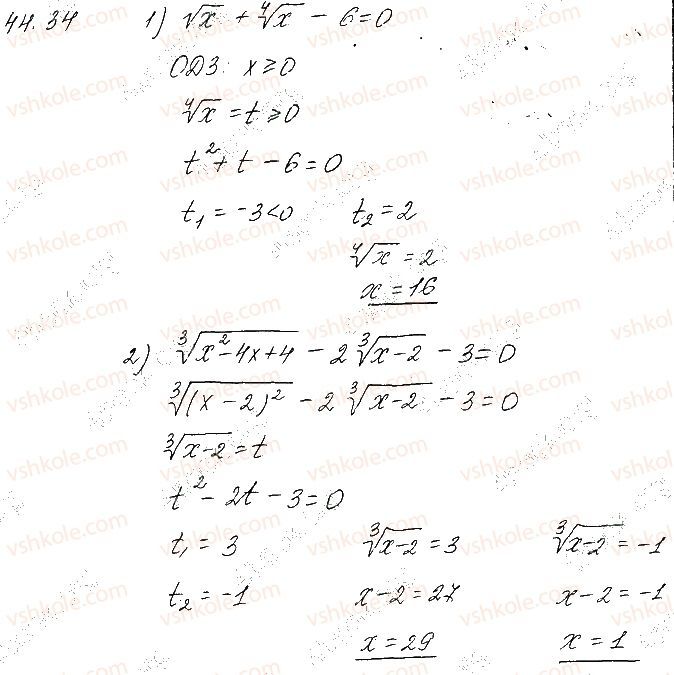 44.34 1) √x + ⁴√x − 6 = 0
ОДЗ: x ≥ 0
⁴√x = t ≥ 0
t² + t − 6 = 0
t₁ = −3 < 0 t₂ = 2
⁴√x = 2
x = 16
2) ³√(x² − 4x + 4) − 2 ³√(x − 2) − 3 = 0
³√((x − 2)²) − 2 ³√(x − 2) − 3 = 0
³√(x − 2) = t
t² − 2t − 3 = 0
t₁ = 3 ³√(x − 2) = 3 ³√(x − 2) = −1
t₂ = −1 x − 2 = 27 x − 2 = −1
x = 29 x = 1
vshkole.com